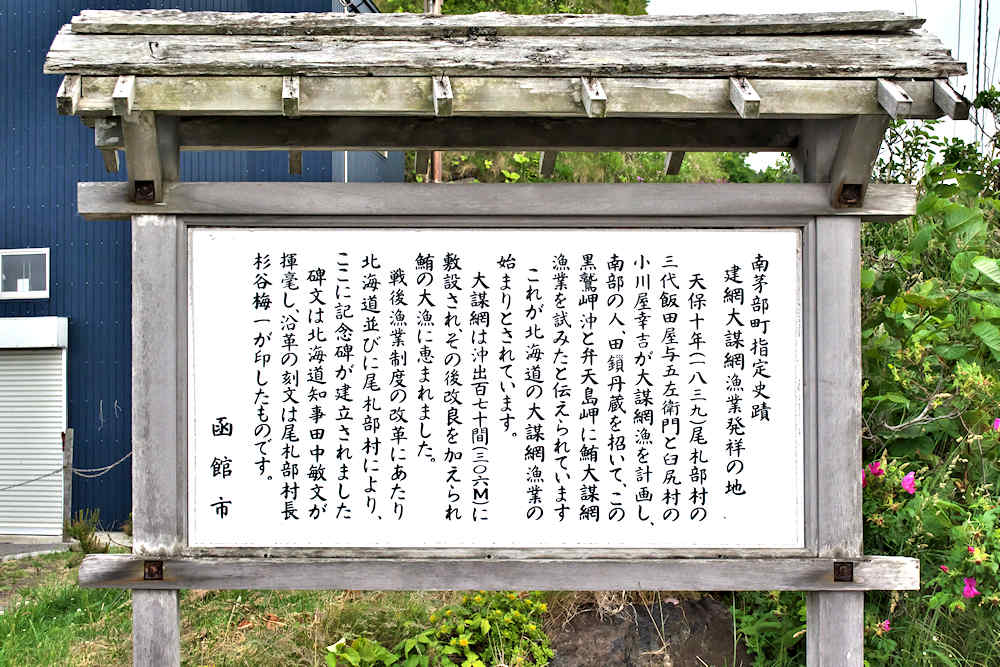 南茅部町指定史蹟
建網大謀網漁業発祥の地
天保十年(一八三九)尾札部村の
三代飯田屋与五左衛門と臼尻村の
小川屋幸吉が大謀網漁を計画し、
南部の人、田鎖丹蔵を招いて、この
黒鷲岬沖と弁天島岬に鮪大謀網
漁業を試みたと伝えられています
これが北海道の大謀網漁業の
始まりとされています。
大謀網は沖出百七十間(三〇六M)に
敷設され、その後改良を加えられ
鮪の大漁に恵まれました。
戦後漁業制度の改革にあたり
北海道並びに尾札部村により、
ここに記念碑が建立されました
碑文は北海道知事田中敏文が
揮毫し、沿革の刻文は尾札部村長
杉谷梅一が印したものです。
函館市